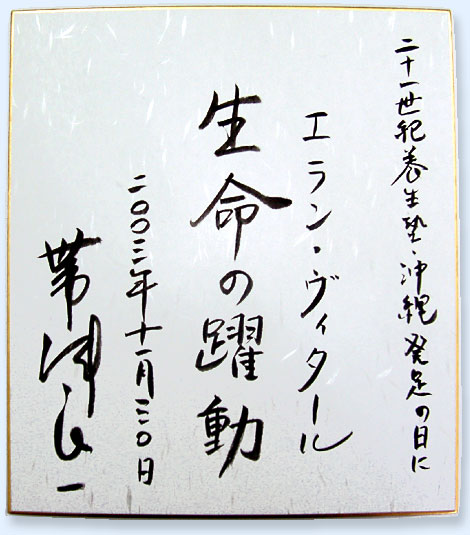 二十一世紀養生塾・沖縄 発足の日に
エラン・ヴィタール
生命の躍動
二〇〇三年十一月三〇日
帯津良一